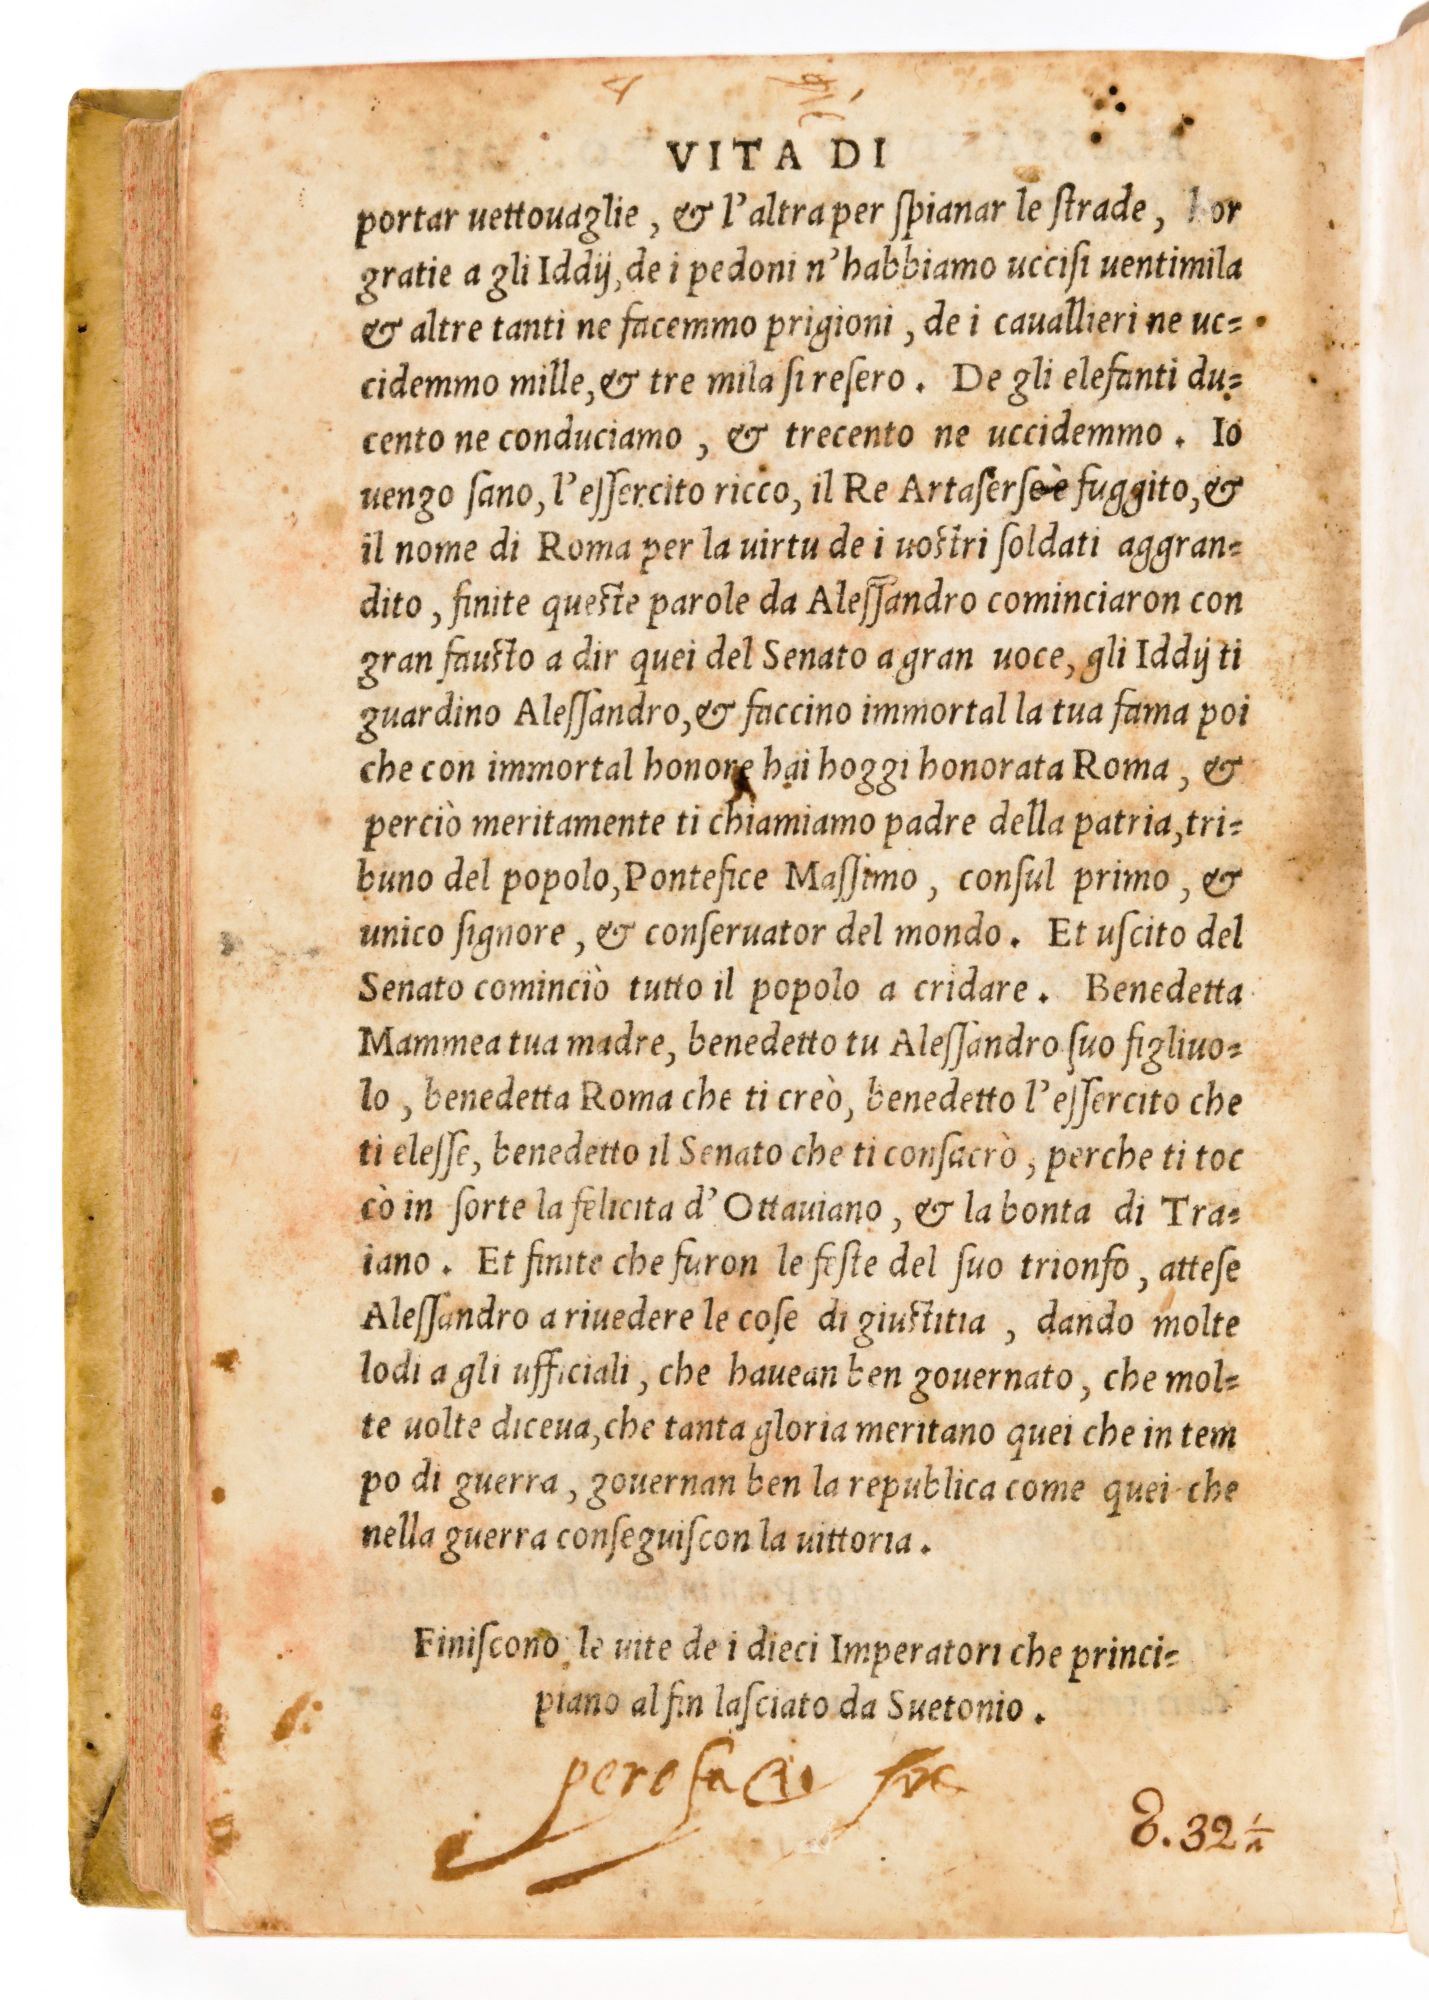 VITA DI
portar uettouaglie, & l'altra per ſpianar le ſtrade, hor
gratie a gli Iddij, de i pedoni n'habbiamo ucciſi uentimila
& altre tanti ne facemmo prigioni, de i cauallieri ne uc=
cidemmo mille, & tre mila ſi reſero. De gli elefanti du=
cento ne conduciamo, & trecento ne uccidemmo. Io
uengo ſano, l'eſſercito ricco, il Re Artaſerſe è fuggito, &
il nome di Roma per la uirtu de i uoſtri ſoldati aggran=
dito, finite queſte parole da Aleſſandro cominciaron con
gran fauſto a dir quei del Senato a gran uoce, gli Iddij ti
guardino Aleſſandro, & faccino immortal la tua fama poi
che con immortal honore hai hoggi honorata Roma, &
perciò meritamente ti chiamiamo padre della patria, tri=
buno del popolo, Pontefice Maſſimo, conſul primo, &
unico ſignore, & conſeruator del mondo. Et uſcito del
Senato cominciò tutto il popolo a cridare. Benedetta
Mammea tua madre, benedetto tu Aleſſandro ſuo figliuo=
lo, benedetta Roma che ti creò, benedetto l'eſſercito che
ti eleſſe, benedetto il Senato che ti conſacrò, perche ti toc
cò in ſorte la felicita d'Ottauiano, & la bonta di Tra=
iano. Et finite che furon le feſte del ſuo trionfo, atteſe
Aleſſandro a riuedere le coſe di giuſtitia, dando molte
lodi a gli ufficiali, che hauean ben gouernato, che mol=
te uolte diceua, che tanta gloria meritano quei che in tem
po di guerra, gouernan ben la republica come quei che
nella guerra conſeguiſcon la uittoria.
Finiſcono le uite de i dieci Imperatori che princi=
piano al fin laſciato da Suetonio.
32